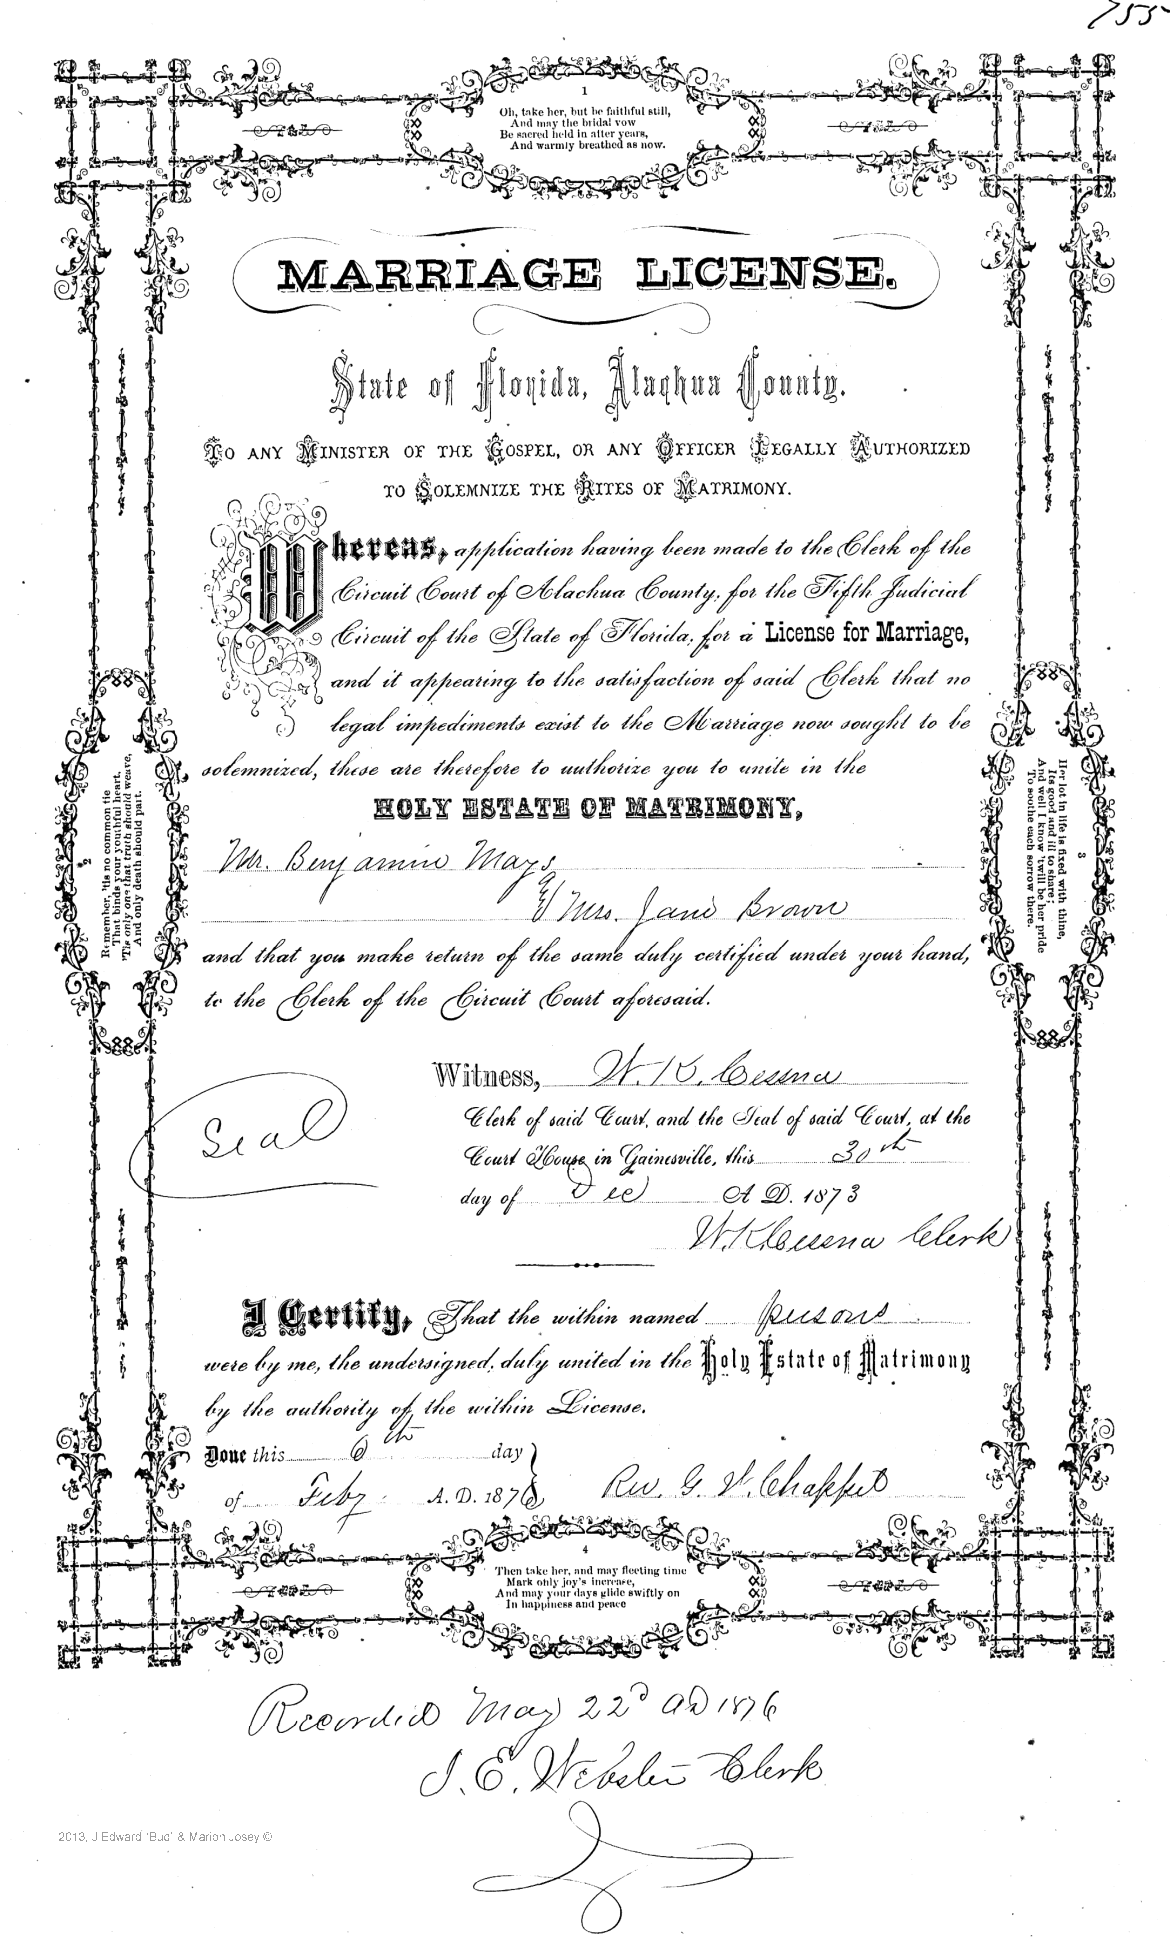 755
1
Oh, take her, but be faithful still,
And may the bridal vow
Be sacred held in after years,
And warmly breathed as now.
MARRIAGE LICENSE.
State of Florida, Alachua County.
TO ANY MINISTER OF THE GOSPEL, OR ANY OFFICER LEGALLY AUTHORIZED
TO SOLEMNIZE THE RITES OF MATRIMONY.
Whereas, application having been made to the Clerk of the
Circuit Court of Alachua County, for the Fifth Judicial
Circuit of the State of Florida, for a License for Marriage,
and it appearing to the satisfaction of said Clerk that no
legal impediments exist to the Marriage now sought to be
solemnized, these are therefore to authorize you to unite in the
HOLY ESTATE OF MATRIMONY,
Mr. Benjamin Mays
& Mrs. Jane Brown
and that you make return of the same duly certified under your hand,
to the Clerk of the Circuit Court aforesaid.
2
Remember, 'tis no common tie
That binds your youthful heart,
'Tis only one that truth should weave,
And only death should part.
3
Her lot in life is fixed with thine,
Its good and ill to share;
And well I know 'twill be her pride
To soothe each sorrow there.
Witness, W. K. Cessna
Seal
Clerk of said Court, and the Seal of said Court, at the
Court House in Gainesville, this 30th
day of Dec A D. 1873
W. K. Cessna Clerk
I Certify, That the within named persons
were by me, the undersigned, duly united in the Holy Estate of Matrimony
by the authority of the within License.
Done this 6th day
of Feby. A. D. 1876
Rev. G. W. Chappel
4
Then take her, and may fleeting time
Mark only joy's increase,
And may your days glide swiftly on
In happiness and peace
Recorded May 22d AD 1876
J. E. Webster Clerk
2013, J Edward "Bud" & Marion Josey ©